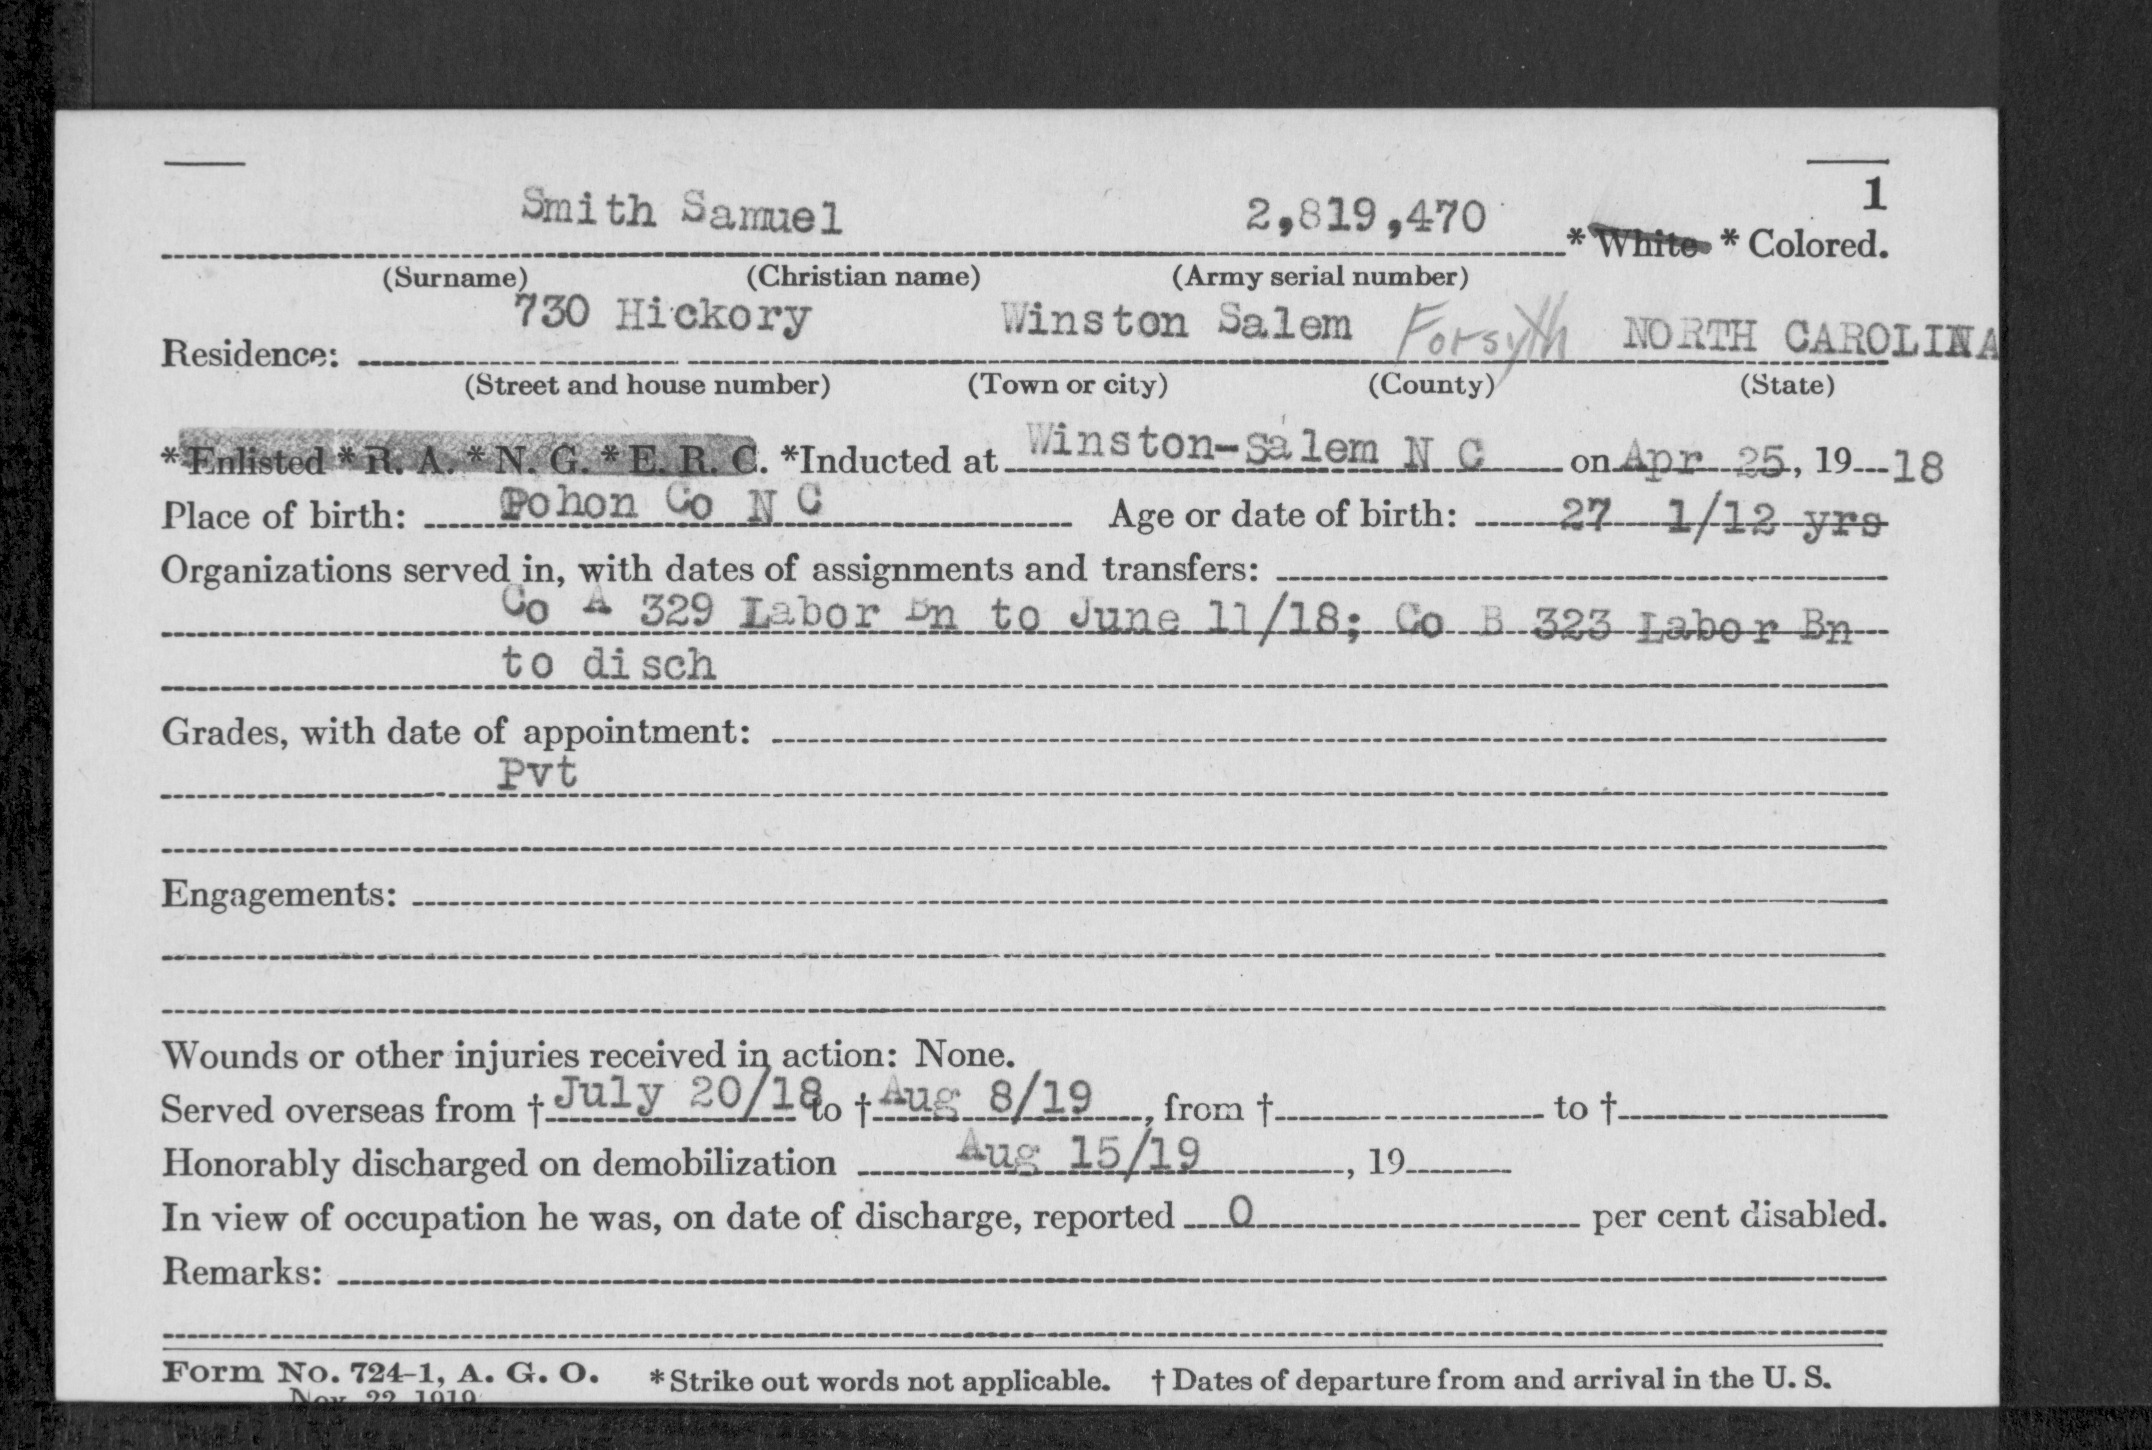 1
Smith Samuel 2,819,470 * White * Colored.
(Surname) (Christian name) (Army serial number)
730 Hickory Winston Salem Forsyth NORTH CAROLINA
Residence:
(Street and house number) (Town or city) (County) (State)
*Enlisted *R. A. *N. G. *E. R. C. *Inducted at Winston-Salem N C on Apr 25, 19 18
Place of birth: Pohon Co N C Age or date of birth: 27 1/12 yrs
Organizations served in, with dates of assignments and transfers:
Co A 329 Labor Bn to June 11/18; Co B 323 Labor Bn
to disch
Grades, with date of appointment:
Pvt
Engagements:
Wounds or other injuries received in action: None.
Served overseas from † July 20/18 to † Aug 8/19, from † to †
Honorably discharged on demobilization Aug 15/19, 19
In view of occupation he was, on date of discharge, reported 0 per cent disabled.
Remarks:
Form No. 724-1, A. G. O. *Strike out words not applicable. † Dates of departure from and arrival in the U. S.
Nov. 22 1919